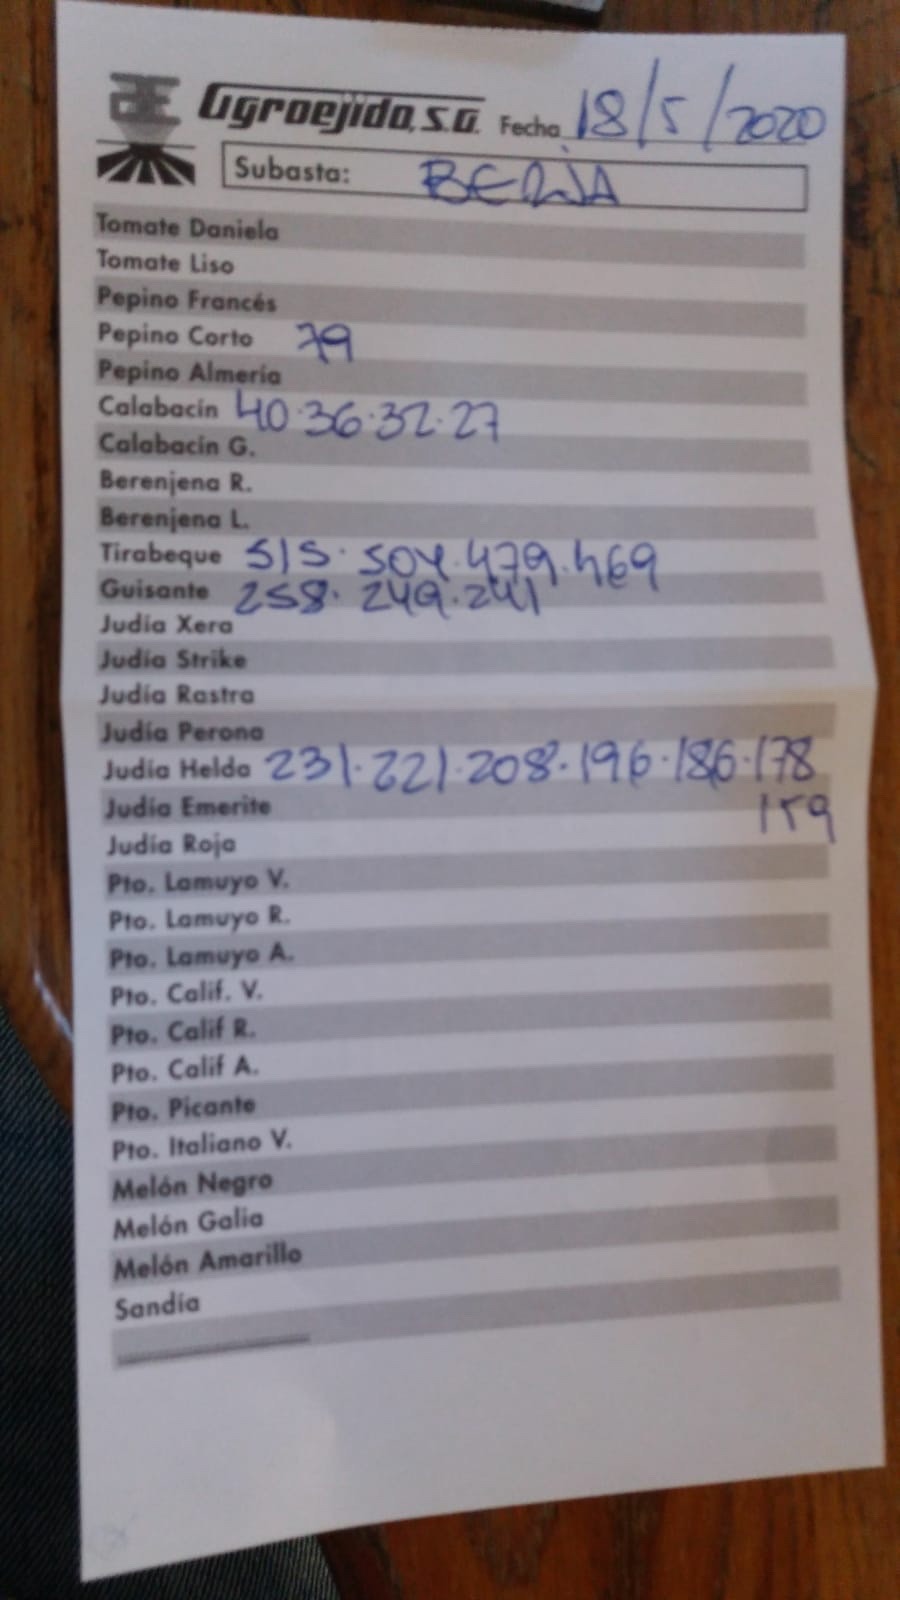 Agroejido, S.A. Fecha 18/5/2020
Subasta: BERJA
Tomate Daniela
Tomate Liso
Pepino Francés
Pepino Corto 79
Pepino Almería
Calabacín 40·36·32·27
Calabacín G.
Berenjena R.
Berenjena L.
Tirabeque 515·504·479·469
Guisante 258·249·241
Judía Xera
Judía Strike
Judía Rastra
Judía Perona
Judía Helda 231·221·208·196·186·178
Judía Emerite 159
Judía Roja
Pto. Lamuyo V.
Pto. Lamuyo R.
Pto. Lamuyo A.
Pto. Calif. V.
Pto. Calif R.
Pto. Calif A.
Pto. Picante
Pto. Italiano V.
Melón Negro
Melón Galia
Melón Amarillo
Sandía